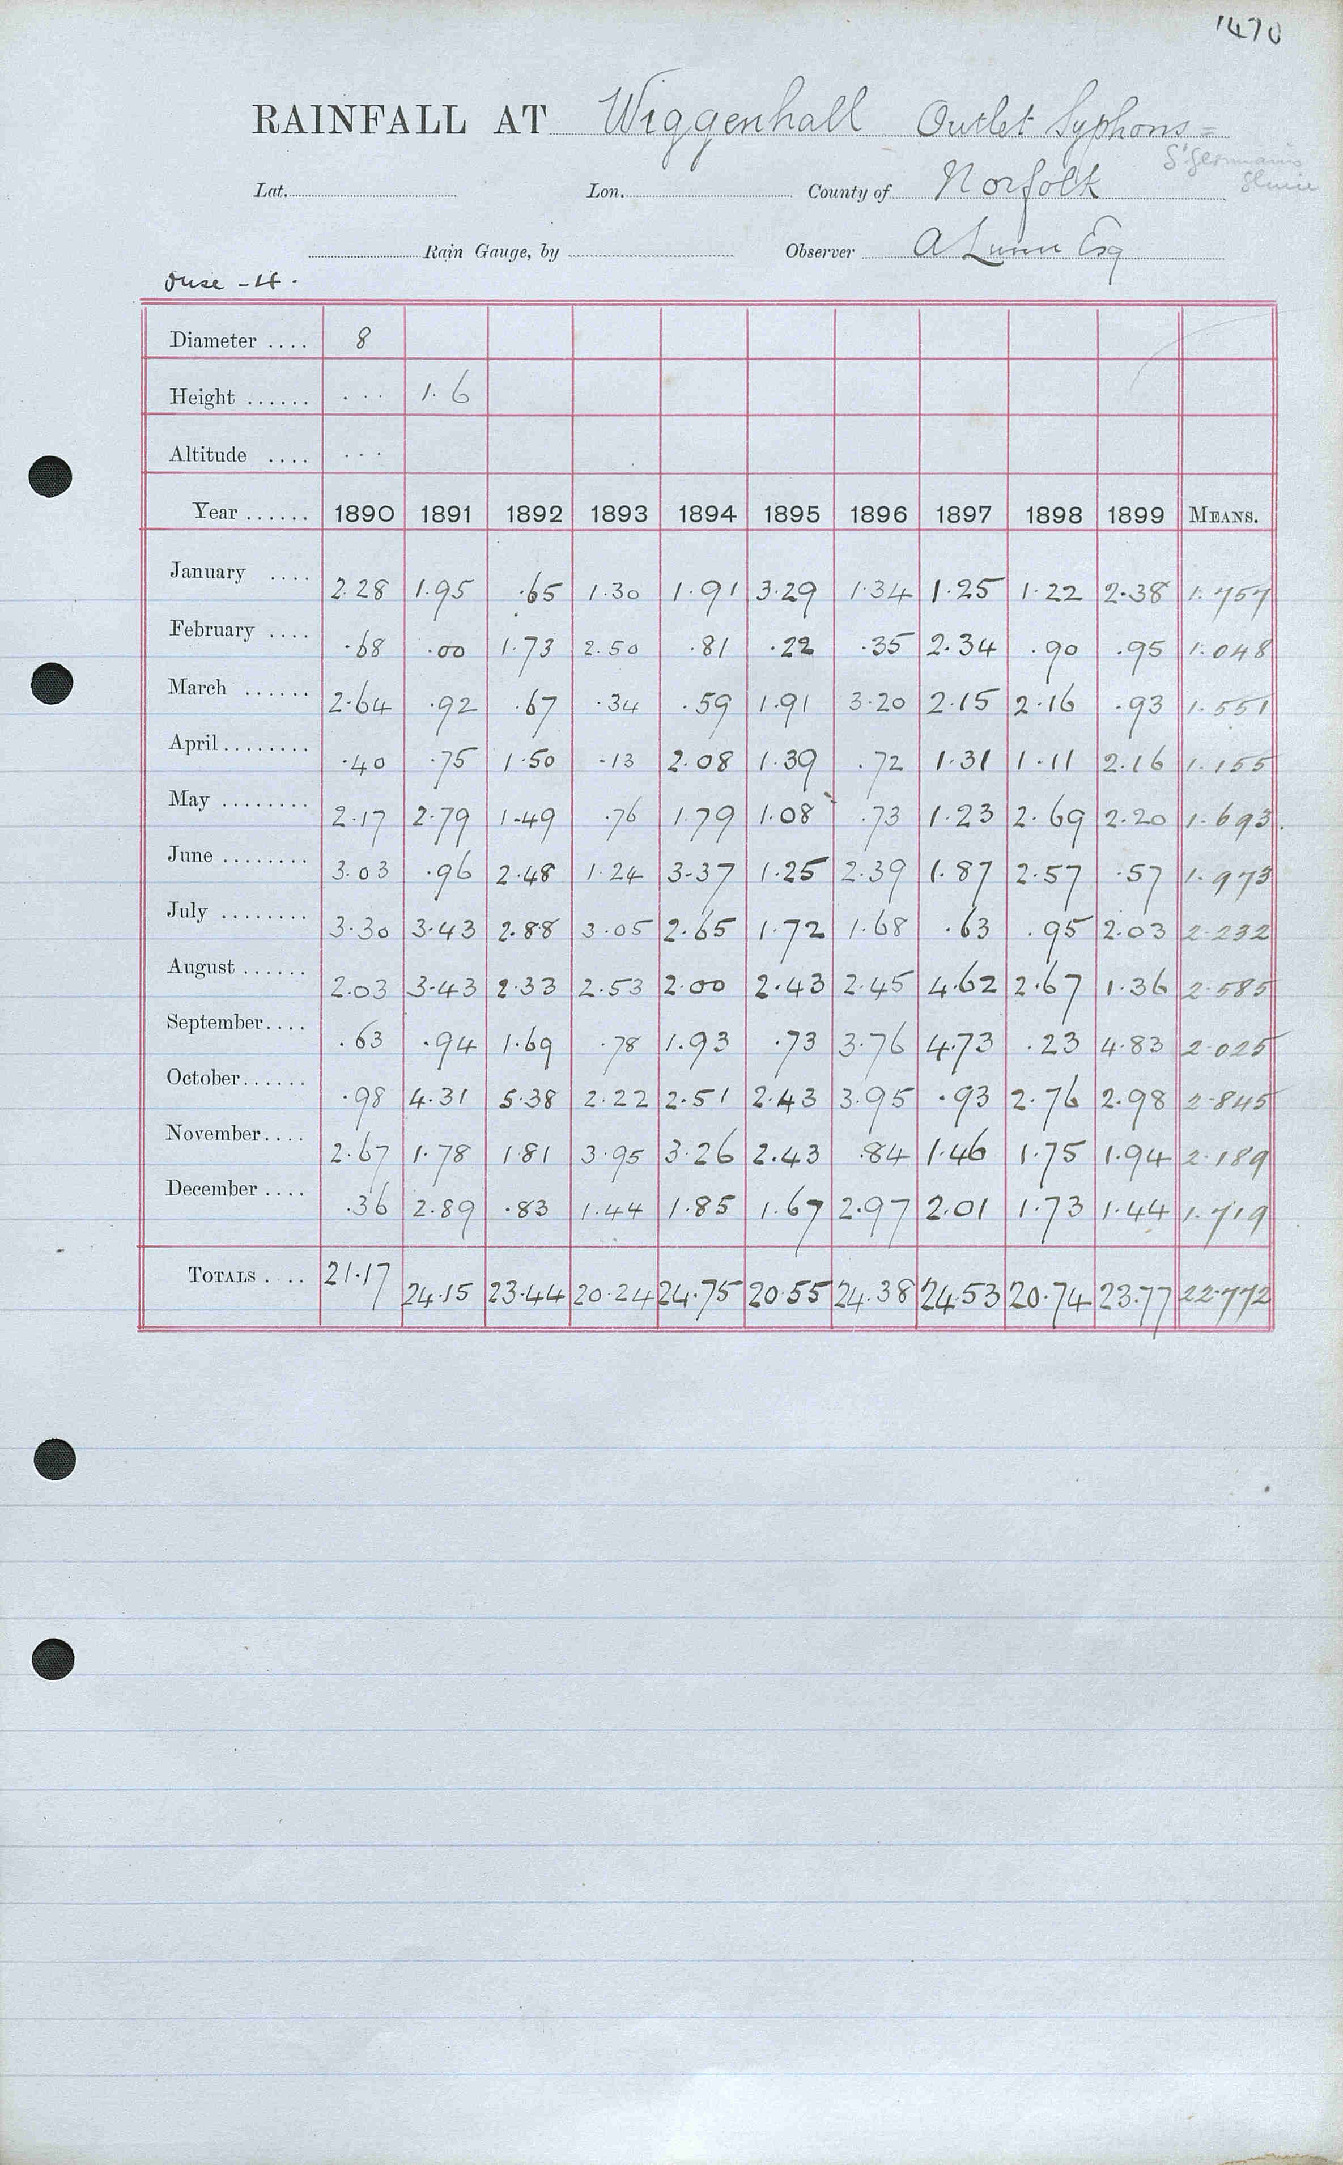 1470
RAINFALL AT Wiggenhall Outlet Syphons =
St Germains
Sluice
Lat. Lon. County of Norfolk
Rain Gauge, by Observer A Lunn Esq
Ouse - 4.
Diameter .... 8
Height ...... ... 1.6
Altitude .... ...
Year ...... 1890 1891 1892 1893 1894 1895 1896 1897 1898 1899 MEANS.
January .... 2.28 1.95 .65 1.30 1.91 3.29 1.34 1.25 1.22 2.38 1.757
February .... .68 .00 1.73 2.50 .81 .22 .35 2.34 .90 .95 1.048
March ...... 2.64 .92 .67 .34 .59 1.91 3.20 2.15 2.16 .93 1.551
April ........ .40 .75 1.50 .13 2.08 1.39 .72 1.31 1.11 2.16 1.155
May ........ 2.17 2.79 1.49 .76 1.79 1.08 .73 1.23 2.69 2.20 1.693
June ........ 3.03 .96 2.48 1.24 3.37 1.25 2.39 1.87 2.57 .57 1.973
July ........ 3.30 3.43 2.88 3.05 2.65 1.72 1.68 .63 .95 2.03 2.232
August ...... 2.03 3.43 2.33 2.53 2.00 2.43 2.45 4.62 2.67 1.36 2.585
September .... .63 .94 1.69 .78 1.93 .73 3.76 4.73 .23 4.83 2.025
October ...... .98 4.31 5.38 2.22 2.51 2.43 3.95 .93 2.76 2.98 2.845
November .... 2.67 1.78 1.81 3.95 3.26 2.43 .84 1.46 1.75 1.94 2.189
December .... .36 2.89 .83 1.44 1.85 1.67 2.97 2.01 1.73 1.44 1.719
TOTALS . .. 21.17 24.15 23.44 20.24 24.75 20.55 24.38 24.53 20.74 23.77 22.772